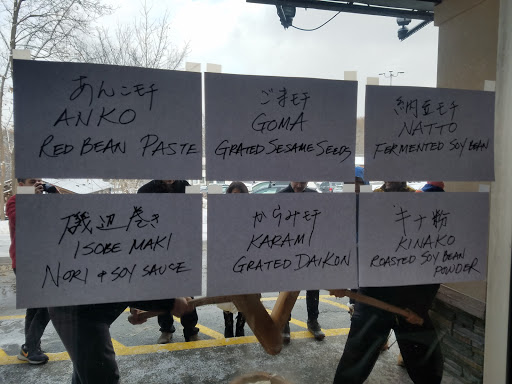 あんこモチ
ANKO
RED BEAN PASTE
ごまモチ
GOMA
GRATED SESAME SEEDS
納豆モチ
NATTO
FERMENTED SOY BEAN
磯辺巻き
ISOBE MAKI
NORI & SOY SAUCE
からみモチ
KARAMI
GRATED DAIKON
キナ粉
KINAKO
ROASTED SOY BEAN
POWDER